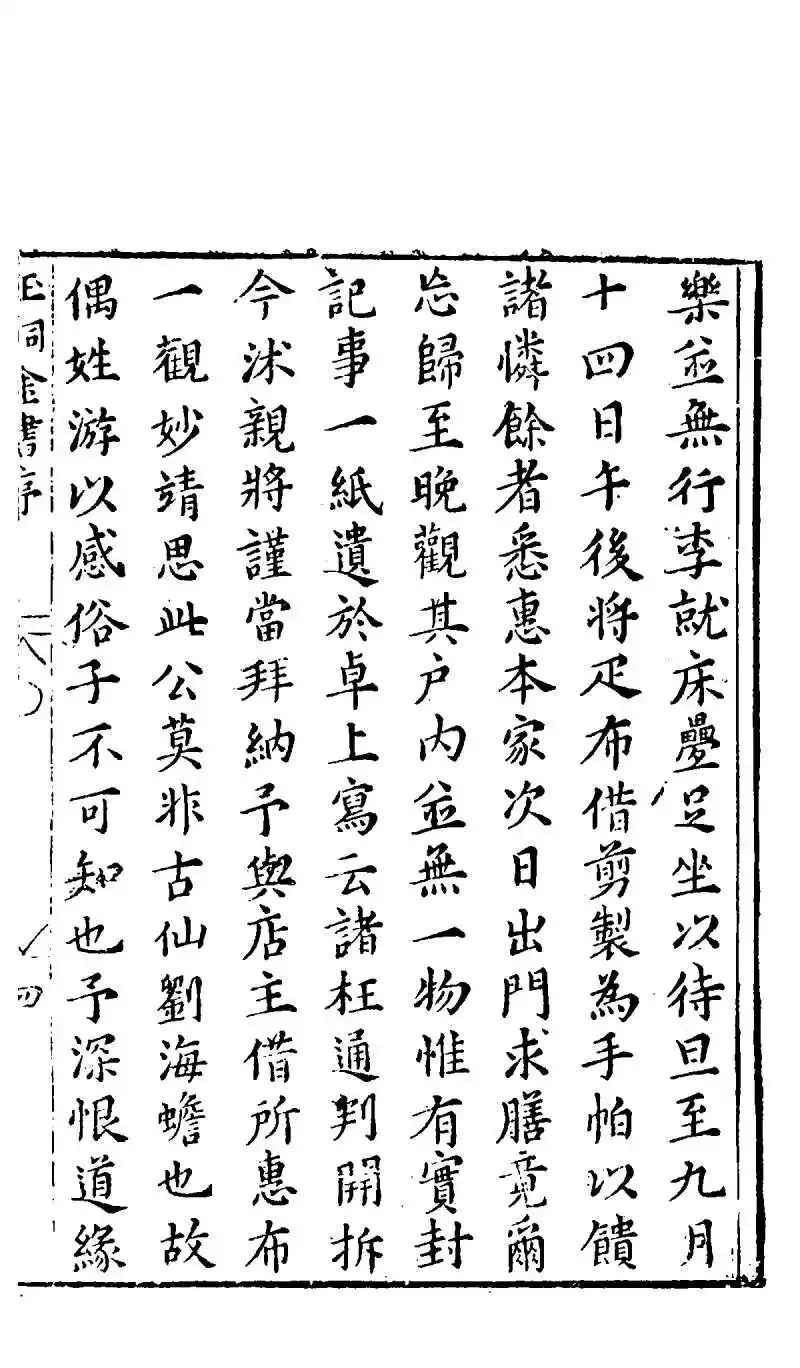 樂並無行李就床疊足坐以待旦至九月
十四日午後将疋布借剪製為手帕以饋
諸憐餘者悉惠本家次日出門求膳竟爾
忘歸至晚觀其户内並無一物惟有實封
記事一紙遺於卓上寫云諸枉通判開拆
今沭親將謹當拜納予與店主借所惠布
一觀妙靖思此公莫非古仙劉海蟾也故
偶姓游以感俗子不可知也予深恨道緣
玉洞金書序 四